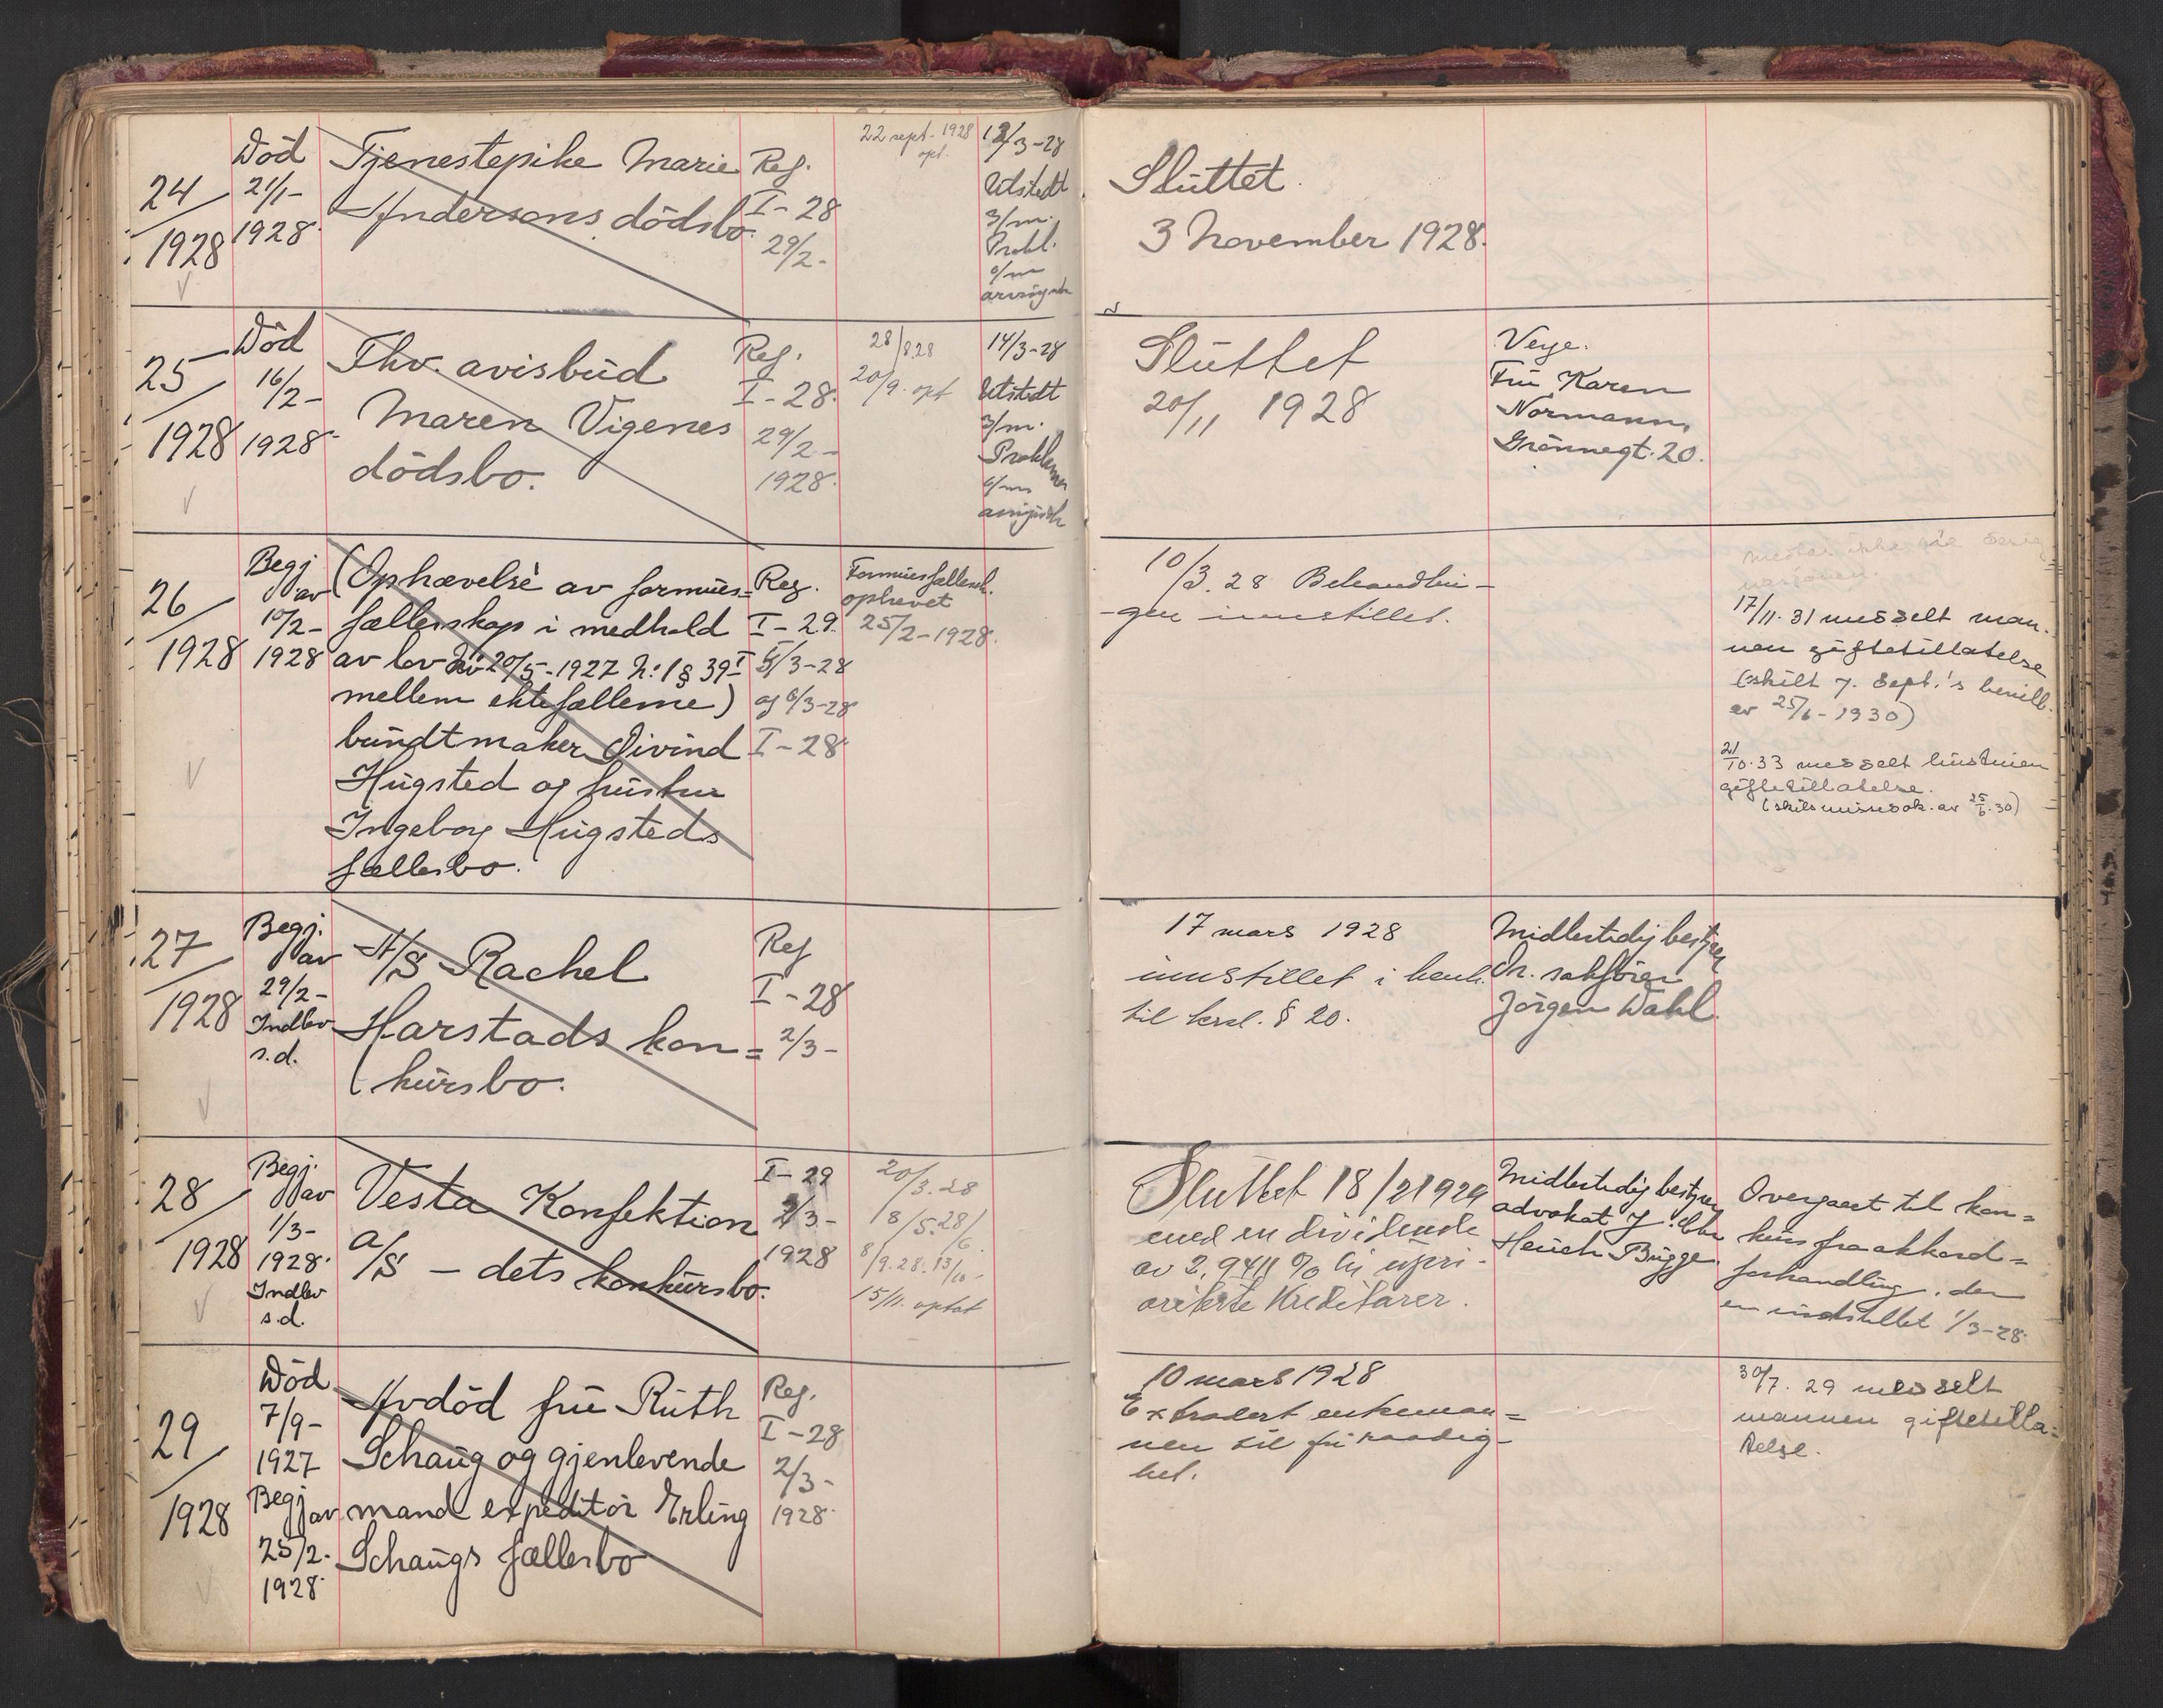 24
1928
Död
21/1-
1928.
Tjenestepike Marie
Andersens dödsbo.
Reg.
I-28
29/2-
22 sept. 1928
opt.
12/3-28
Utstedt
3/m.
Prokl.
Sluttet.
3 November 1928.
25
1928
Död
16/2-
1928.
Fhv. avisbud
Maren Vigenes
dödsbo.
Reg.
I-28.
29/2-
1928.
28/8.28
20/9. opt
14/3-28
Utstedt
3/m.
Proklama
Sluttet
20/11 1928
Verge.
Fru Karen
Normann,
Grönnegt. 20.
26
1928
Begj
av
10/2-
1928
(Ophævelse av formues=
fællesskap i medhold
av lov av 20/5-1927 N: 1 § 39 I
mellem ektefællerne)
bundtmaker Öivind
Hugsted og hustru
Ingeborg Hugsteds
fællesbo.
Reg.
I-29.
5/3-28
og 6/3-28
I-28.
Formuesfællessk.
ophevet
25/2-1928.
10/3.28 Behandlin-
-gen innstillet.
17/11.31 meddelt man-
nen giftetillatelse
(skilt 7. Sept.'s bevill.
av 25/6-1930)
21/10.33 meddelt hustruen
giftetillatelse.
(skilsmissesak. av 25/6.30)
27
1928
Begj.
av
29/2-
Indlev
s.d.
A/S Rachel
Harstads kon=
kursbo.
Reg
I-28
2/3-
17 mars 1928
innstillet i henh.
til krsl. § 20.
Midlertidig bestyrer
Or. sakförer
Jörgen Dahl.
28
1928
Begj.
av
1/3-
1928.
Indlev
s.d.
Vesta Konfektion
A/S - dets konkursbo.
I-29
2/3-
1928
20/3.28
8/5.28/6.
8/9.28.13/10-
15/11. optat
Sluttet 18/2 1929
med en dividende
av 2,9411 % til upri-
oriterte Kreditorer.
Midlertidig bestyrer
advokat
Henich Bugge.
Overgaat til kon=
kurs fra akkord=
forhandling, den
er indstillet 1/3-28.
29
1928
Död
7/9-
1927
Begj
av
25/2-
1928.
Avdöd fru Ruth
Schaug og gjenlevende
mand expeditör Erling
Schaugs fællesbo
Reg.
I-28
2/3-
1928.
10 mars 1928
Extradert enkeman=
nen til fri raadig-
het.
30/7.29 meddelt
mannen giftetilla=
telse.